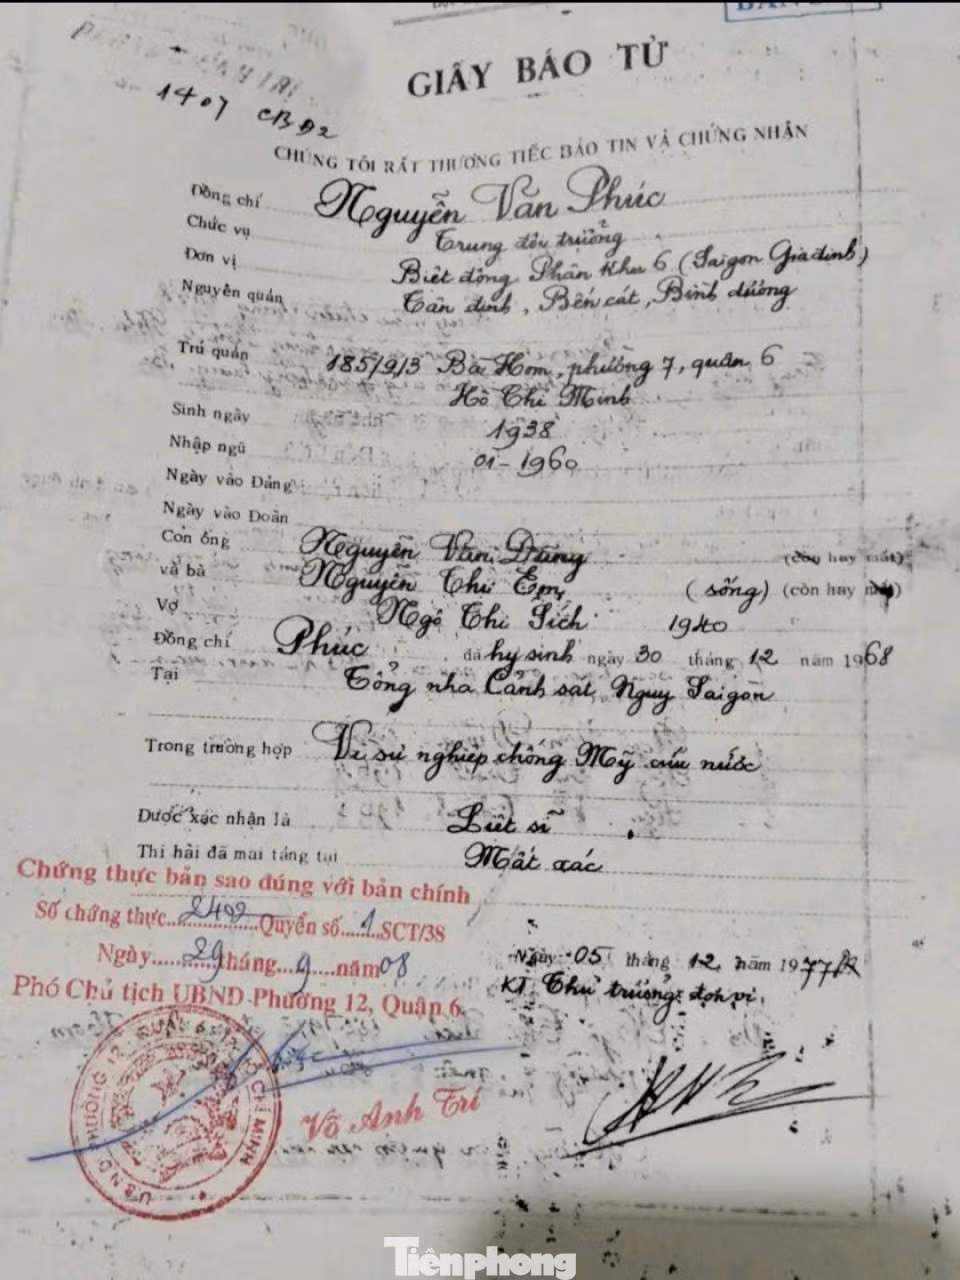 GIẤY BÁO TỬ
1407 CBĐ2
CHÚNG TÔI RẤT THƯƠNG TIẾC BÁO TIN VÀ CHỨNG NHẬN
Đồng chí Nguyễn Văn Phúc
Chức vụ Trung đội trưởng
Đơn vị Biệt động Phân khu 6 (Saigon Gia định)
Nguyên quán Tân định, Bến cát, Bình dương
Trú quán 185/9/3 Bà Hom, phường 7, quân 6
Hồ Chí Minh
Sinh ngày 1938
Nhập ngũ 01-1960
Ngày vào Đảng
Ngày vào Đoàn
Con ông Nguyễn Văn (còn hay mất)
và bà Nguyễn Thị Em (sống) (còn hay mất)
Vợ Ngô Thị Tích 1940
Đồng chí Phúc đã hy sinh ngày 30 tháng 12 năm 1968
Tại Tổng nha Cảnh sát Ngụy Saigon
Trong trường hợp Vì sự nghiệp chống Mỹ cứu nước
Được xác nhận là Liệt sĩ
Thi hài đã mai táng tại Mất xác
Chứng thực bản sao đúng với bản chính
Số chứng thực 2402 Quyển số 1 SCT/38
Ngày 29 tháng 9 năm 08
Phó Chủ tịch UBND Phường 12, Quận 6
Ngày 05 tháng 12 năm 1977
KT Thủ trưởng đơn vị
Võ Anh Trí
U.B.N.D PHƯỜNG 12 QUẬN 6 T.P HỒ CHÍ MINH
Tiênphong